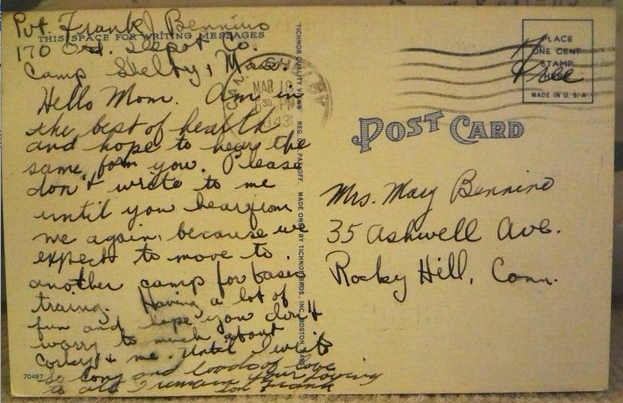 Pvt. Frank J. Bennino
THIS SPACE FOR WRITING MESSAGES
170 Ord. Depot Co.
Camp Shelby, Miss.
Hello Mom. Am in
the best of health
and hope to hear the
same from you. Please
don't write to me
until you hear from
me again, because we
expect to move to
another camp for basic
traing. Having a lot of
fun and hope you don't
worry to much about
Corky & me. Until I write
so long and loads of love
to all I remain your loving
son Frank
70487
TICHNOR QUALITY VIEWS REG. U.S. PAT. OFF. MADE ONLY BY TICHNOR BROS. INC. BOSTON
MAR 10
630 PM
PLACE
ONE CENT
STAMP
HERE
MADE IN U.S.A.
Free
POST CARD
Mrs. Mary Bennino
35 Ashwell Ave.
Rocky Hill, Conn.